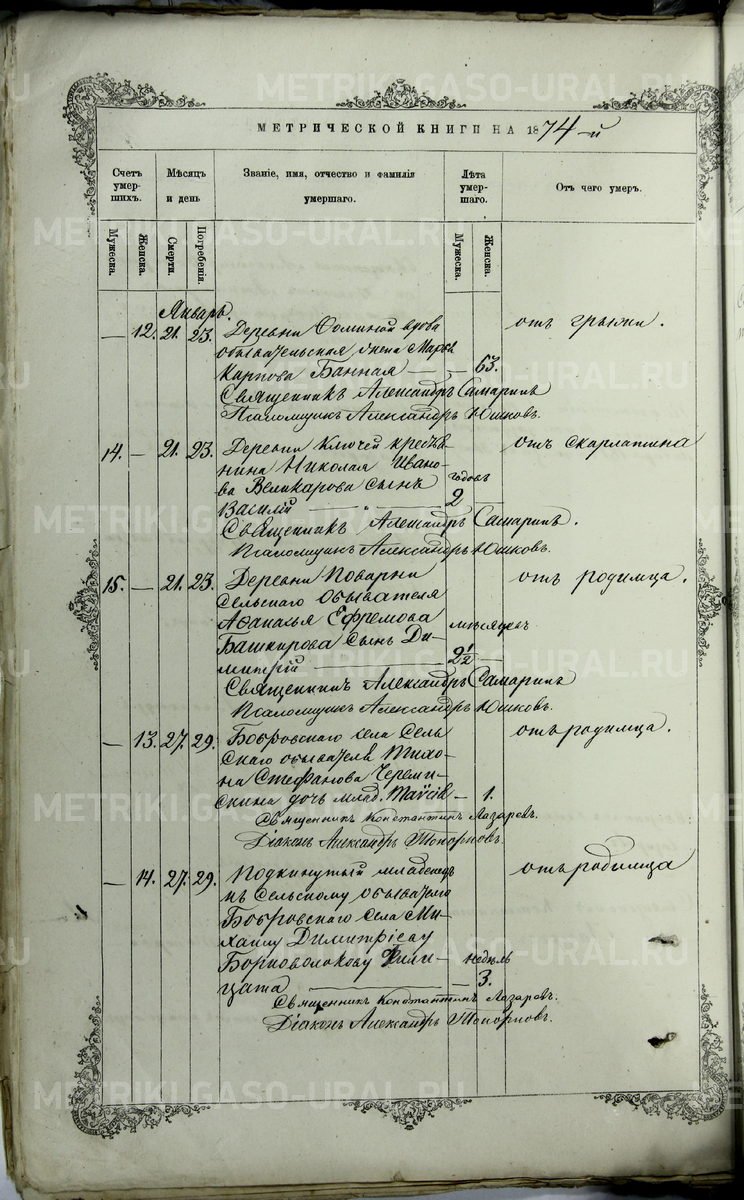 МЕТРИЧЕСКОЙ КНИГИ НА 1874-й
Счетъ умер-шихъ.
Мѣсяцъ и день
Званіе, имя, отчество и фамилія умершаго.
Лѣта умер-шаго.
Отъ чего умеръ.
Мужеска.
Женска.
Смерти.
Погребенія.
Мужеска.
Женска.
Январь.
— 12. 21. 23. Деревни Фоминой вдова отъ грыжи.
обывательская жена Марѳа
Карпова Банная — — 63.
Священникъ Александръ Самаринъ
Псаломщикъ Александръ Юшковъ.
14. — 21. 23. Деревни Ключей крестья- отъ скарлатина
нина Николая Ивано-
ва Великарова сынъ годовъ
Василій — 2 —
Священникъ Александръ Самаринъ.
Псаломщикъ Александръ Юшковъ.
15. — 21. 23. Деревни Поварни отъ родимца.
сельскаго обывателя
Аѳанасья Ефремова
Башкирова сынъ Ди- мѣсяцевъ
митрій — 2½ —
Священникъ Александръ Самаринъ
Псаломщикъ Александръ Юшковъ.
— 13. 27. 29. Бобровскаго села сель отъ родимца.
скаго обывателя Тихо-
на Стефанова Череми-
скина дочь млад. Таисія — 1.
Священникъ Константинъ Лазаревъ.
Діаконъ Александръ Топорковъ.
— 14. 27. 29. Подкинутый младенецъ отъ родимца
къ сельскому обывателю
Бобровскаго села Ми-
хаилу Димитріеву
Борноволокову Фили- недѣль
цата — 3.
Священникъ Константинъ Лазаревъ.
Діаконъ Александръ Топорковъ.
METRIKI.GASO-URAL.RU